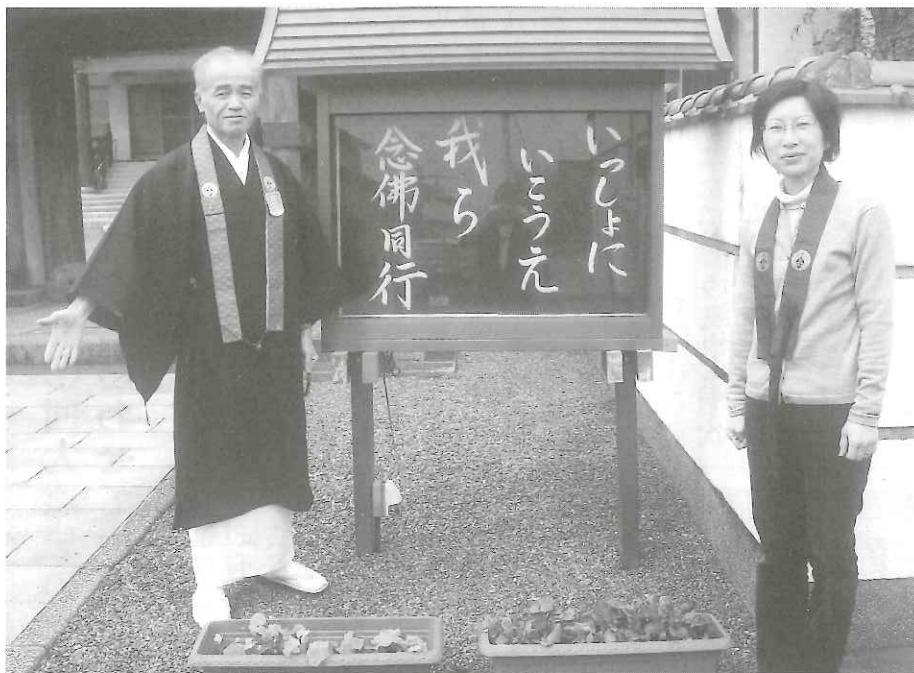 いっしょに
いこうえ
我ら
念佛同行